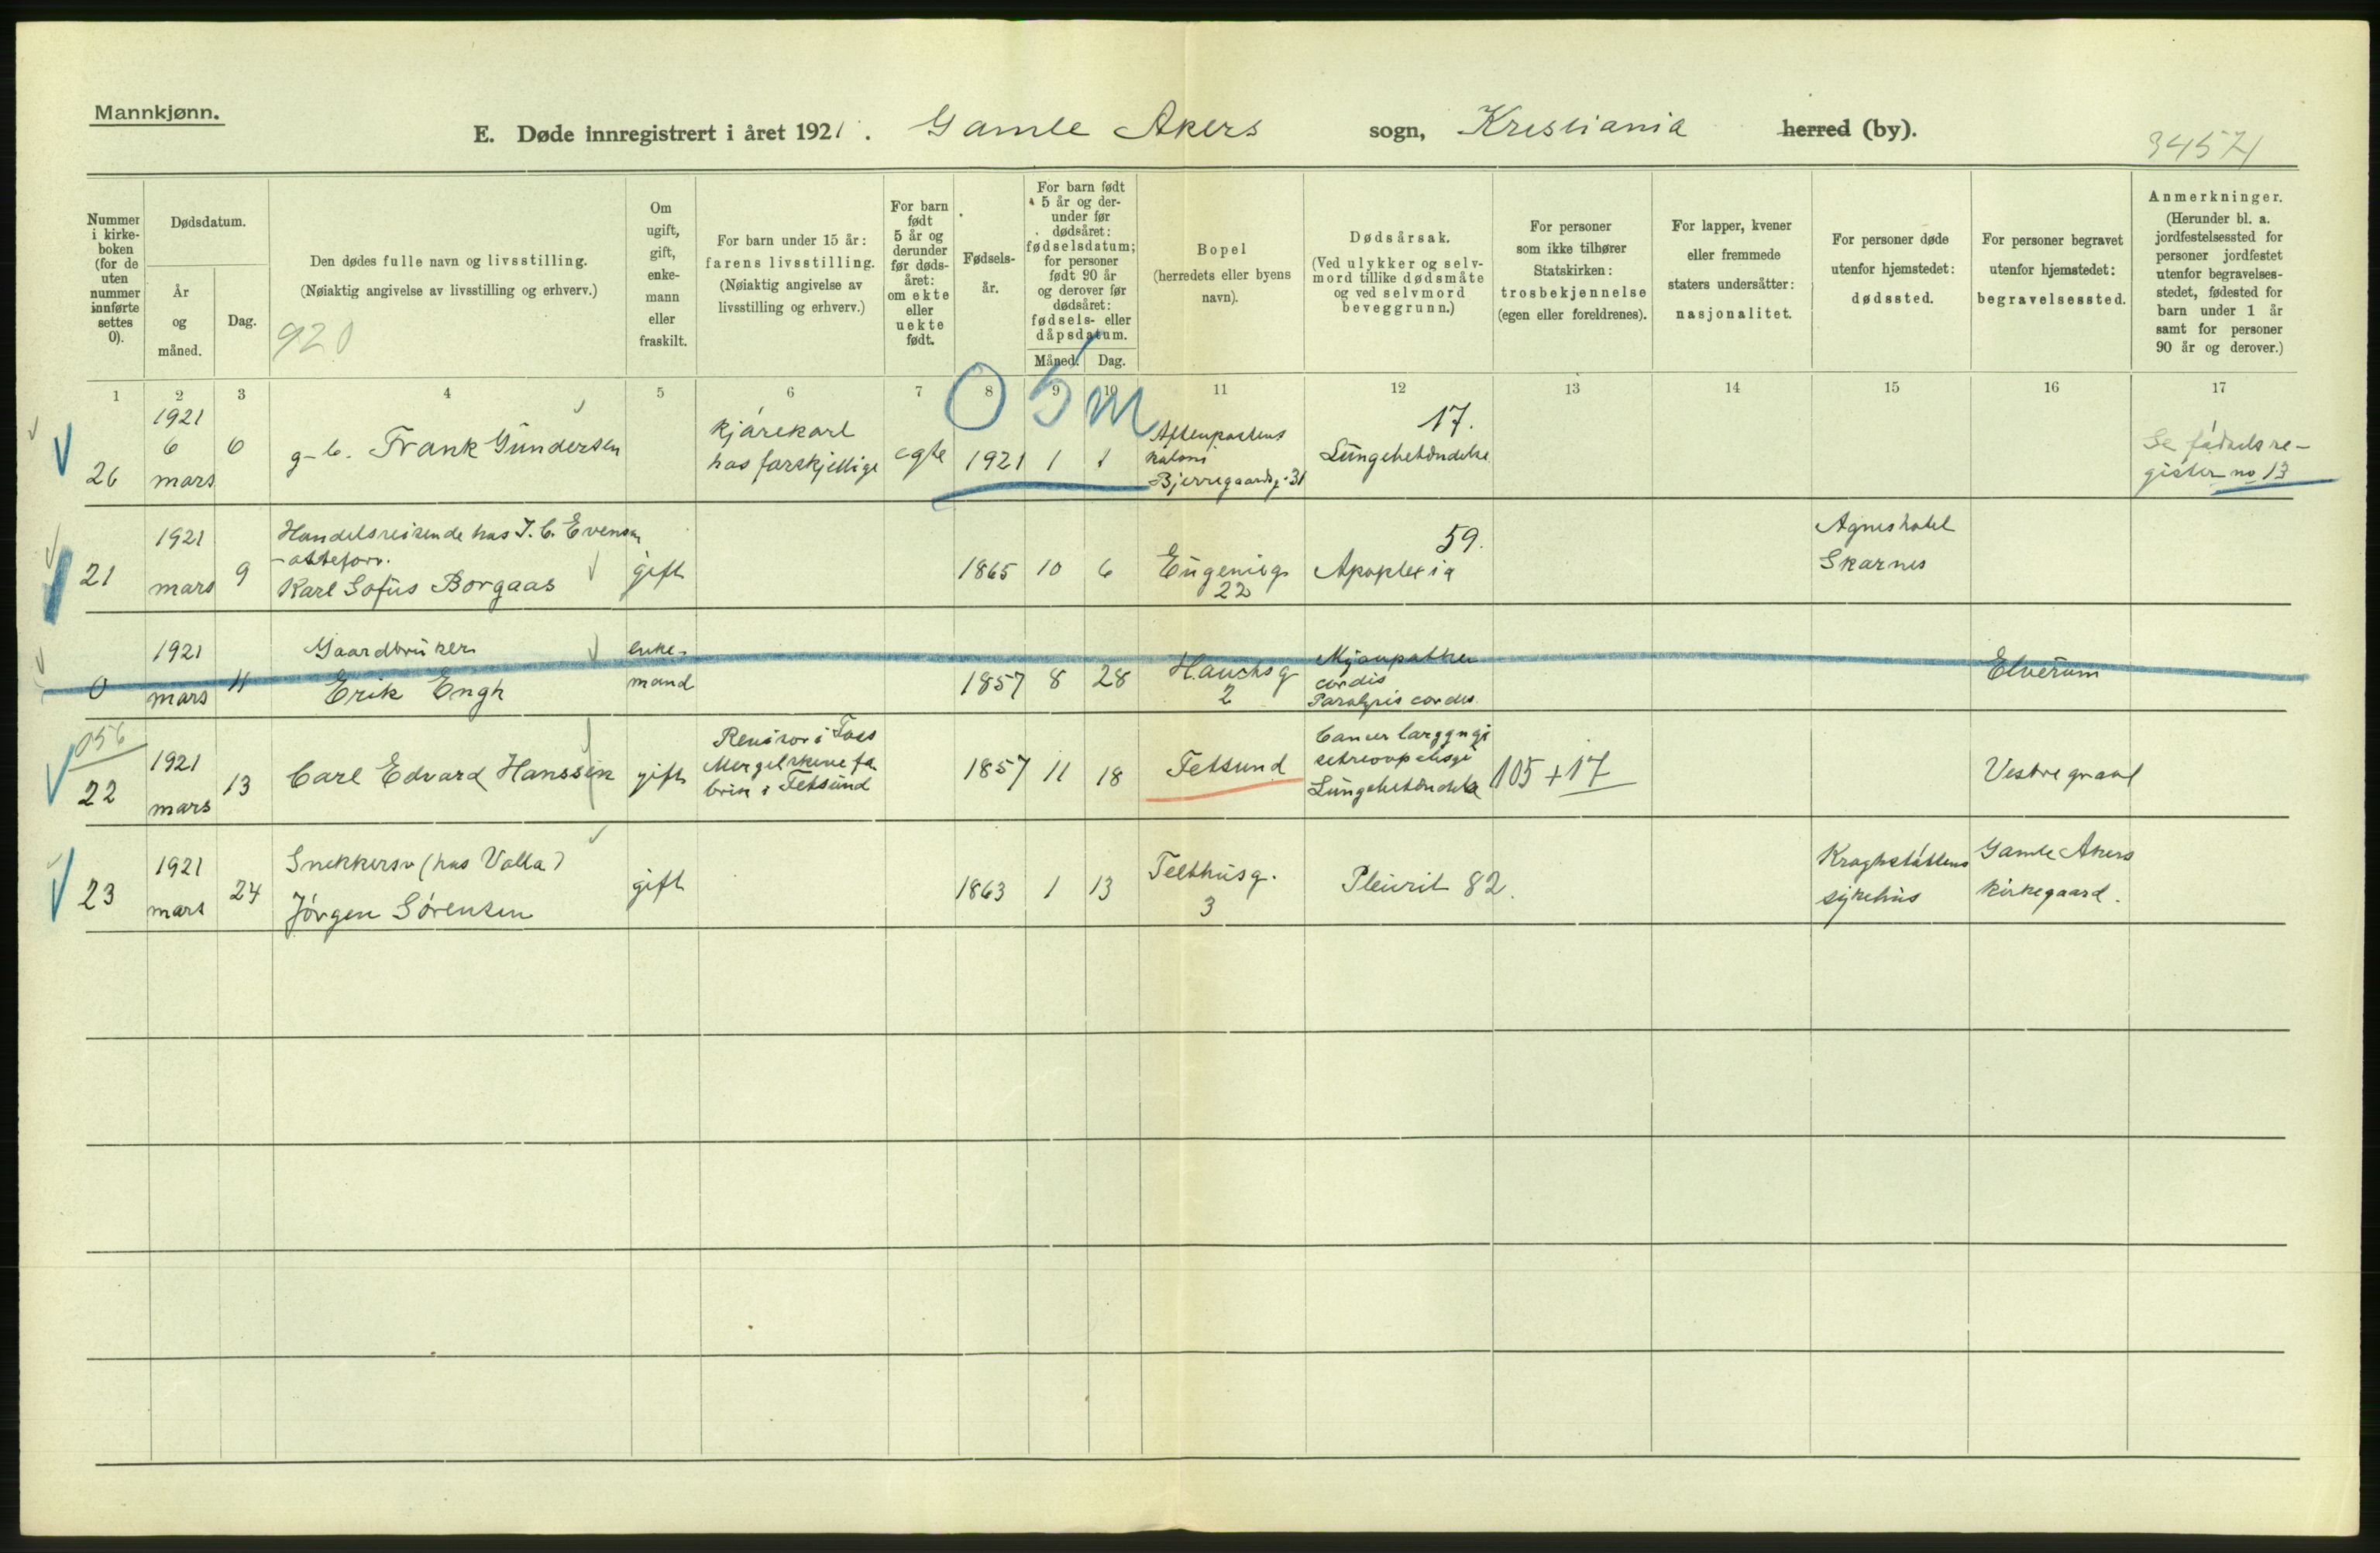 Mannkjønn.
E. Døde innregistrert i året 1921. Gamle Akers sogn, Kristiania herred (by).
34571
Nummer i kirke-boken (for de uten nummer innførte settes 0).
Dødsdatum.
År og måned.
Dag.
Den dødes fulle navn og livsstilling.
(Nøiaktig angivelse av livsstilling og erhverv.)
920
Om ugift, gift, enke-mann eller fraskilt.
For barn under 15 år:
farens livsstilling.
(Nøiaktig angivelse av
livsstilling og erhverv.)
For barn født 5 år og derunder før døds-året: om ekte eller uekte født.
Fødsels-år.
For barn født 5 år og der-under før dødsåret: fødselsdatum; for personer født 90 år og derover før dødsåret: fødsels- eller dåpsdatum.
Måned. Dag.
Bopel
(herredets eller byens
navn).
Dødsårsak.
(Ved ulykker og selv-
mord tillike dødsmåte
og ved selvmord
beveggrunn.)
For personer
som ikke tilhører
Statskirken:
trosbekjennelse
(egen eller foreldrenes).
For lapper, kvener
eller fremmede
staters undersåtter:
nasjonalitet.
For personer døde
utenfor hjemstedet:
dødssted.
For personer begravet
utenfor hjemstedet:
begravelsessted.
Anmerkninger.
(Herunder bl. a.
jordfestelsessted for
personer jordfestet
utenfor begravelses-
stedet, fødested for
barn under 1 år
samt for personer
90 år og derover.)
1 2 3 4 5 6 7 8 9 10 11 12 13 14 15 16 17
0 5 m
26
1921
6
mars
6
g-b. Frank Gundersen
kjørekarl
hos forskjellige
egte
1921 1 1
Aftenpostens
koloni
Bjerregaardsg. 31
17.
Lungebetændelse
Se fødselsre-
gister no 13
21
1921
mars
9
Handelsreisende hos I. C. Evensen
Karl Sofus Borgaas
gift
1865 10 6
Eugeniegs
22
59.
Apoplexia
Agneshotel
Skarnes
0
1921
mars
11
Gaardbruker
Erik Engh
enke-
mand
1857 8 28
Hauchsg
2
cordis
Paralysis cordis
Elverum
056
22
1921
mars
13
Carl Edvard Hanssen
gift
Revisor i
brik i Fetsund
1857 11 18
Fetsund
Cancer laryngi
Lungebetændelse
105 + 17
Vestre gravl
23
1921
mars
24
Snekkersv (hos Volla)
Jørgen Sørensen
gift
1863 1 13
Telthusg.
3
Pleurit 82.
Kraghstøttens
sykehus
Gamle Akers
kirkegaard.